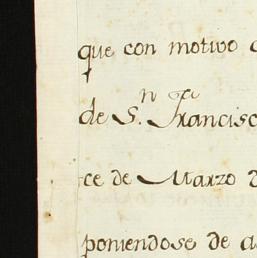 que con motivo
de S.n Francisc
ce de Marzo
poniendose de